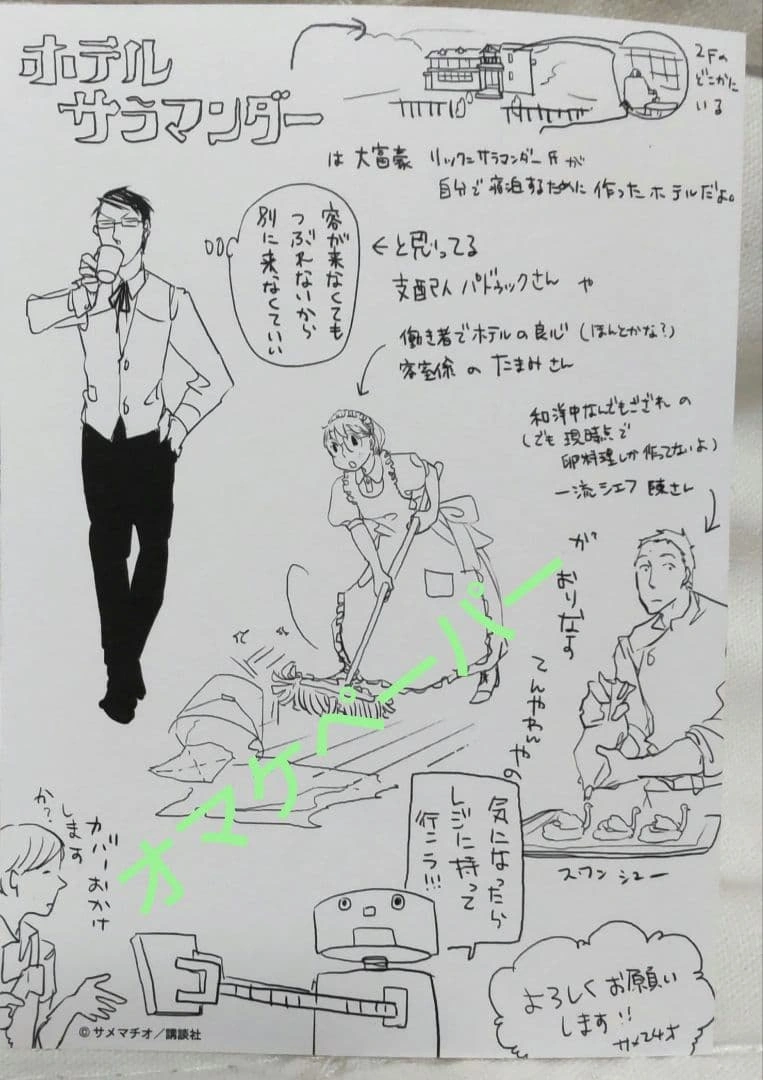 ホテル
サラマンダー
2Fの
どこかに
いる
は 大富豪 リック=サラマンダー氏が
自分で宿泊するために作ったホテルだよ。
客が来なくても
つぶれないから
別に来なくていい
←と思ってる
支配人 パドゥックさん や
働き者でホテルの良心(ほんとかな?)
客室係の たまみさん
和洋中なんでもござれの
(でも現時点で
卵料理しか作ってないよ)
一流シェフ 陳さん
が
おりなす
てんやわんやの
オマケペーパー
スワン シュー
気になったら
レジに持って
行こう!!!
カバーおかけ
します
か?
よろしくお願い
します!!
サメマチオ
© サメマチオ/講談社